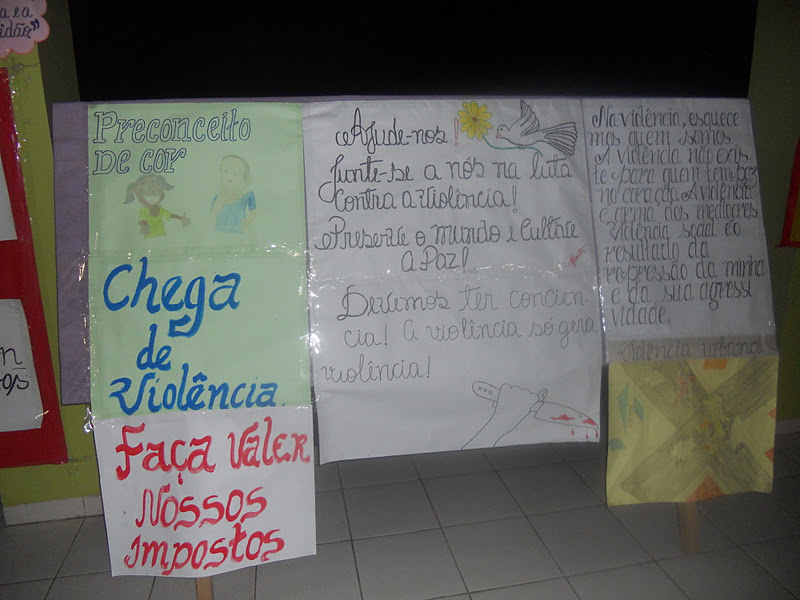 Preconceito
De cor
Chega
de
Violência
Faça Valer
Nossos
impostos
Ajude-nos!
Junte-se a nós na luta
Contra a Violência!
Preserve o mundo e Cultive
A Paz!...
Devemos ter concien-
cia! A violência só gera
violência!
Na violência, esquece-
mos quem somos
A violência não exis-
te para quem tem paz
no coração. A violência
é arma dos mediocres
Violência social é o
resultado da
repressão da minha
e da sua agressi
vidade.
Violência urbana